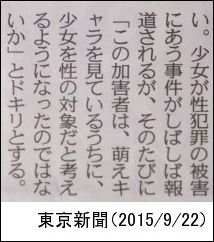 い。少女が性犯罪の被害
にあう事件がしばしば報
道されるが、そのたびに
「この加害者は、萌えキ
ャラを見ているうちに、
少女を性の対象だと考え
るようになったのではな
いか」とドキリとする。
東京新聞(2015/9/22)